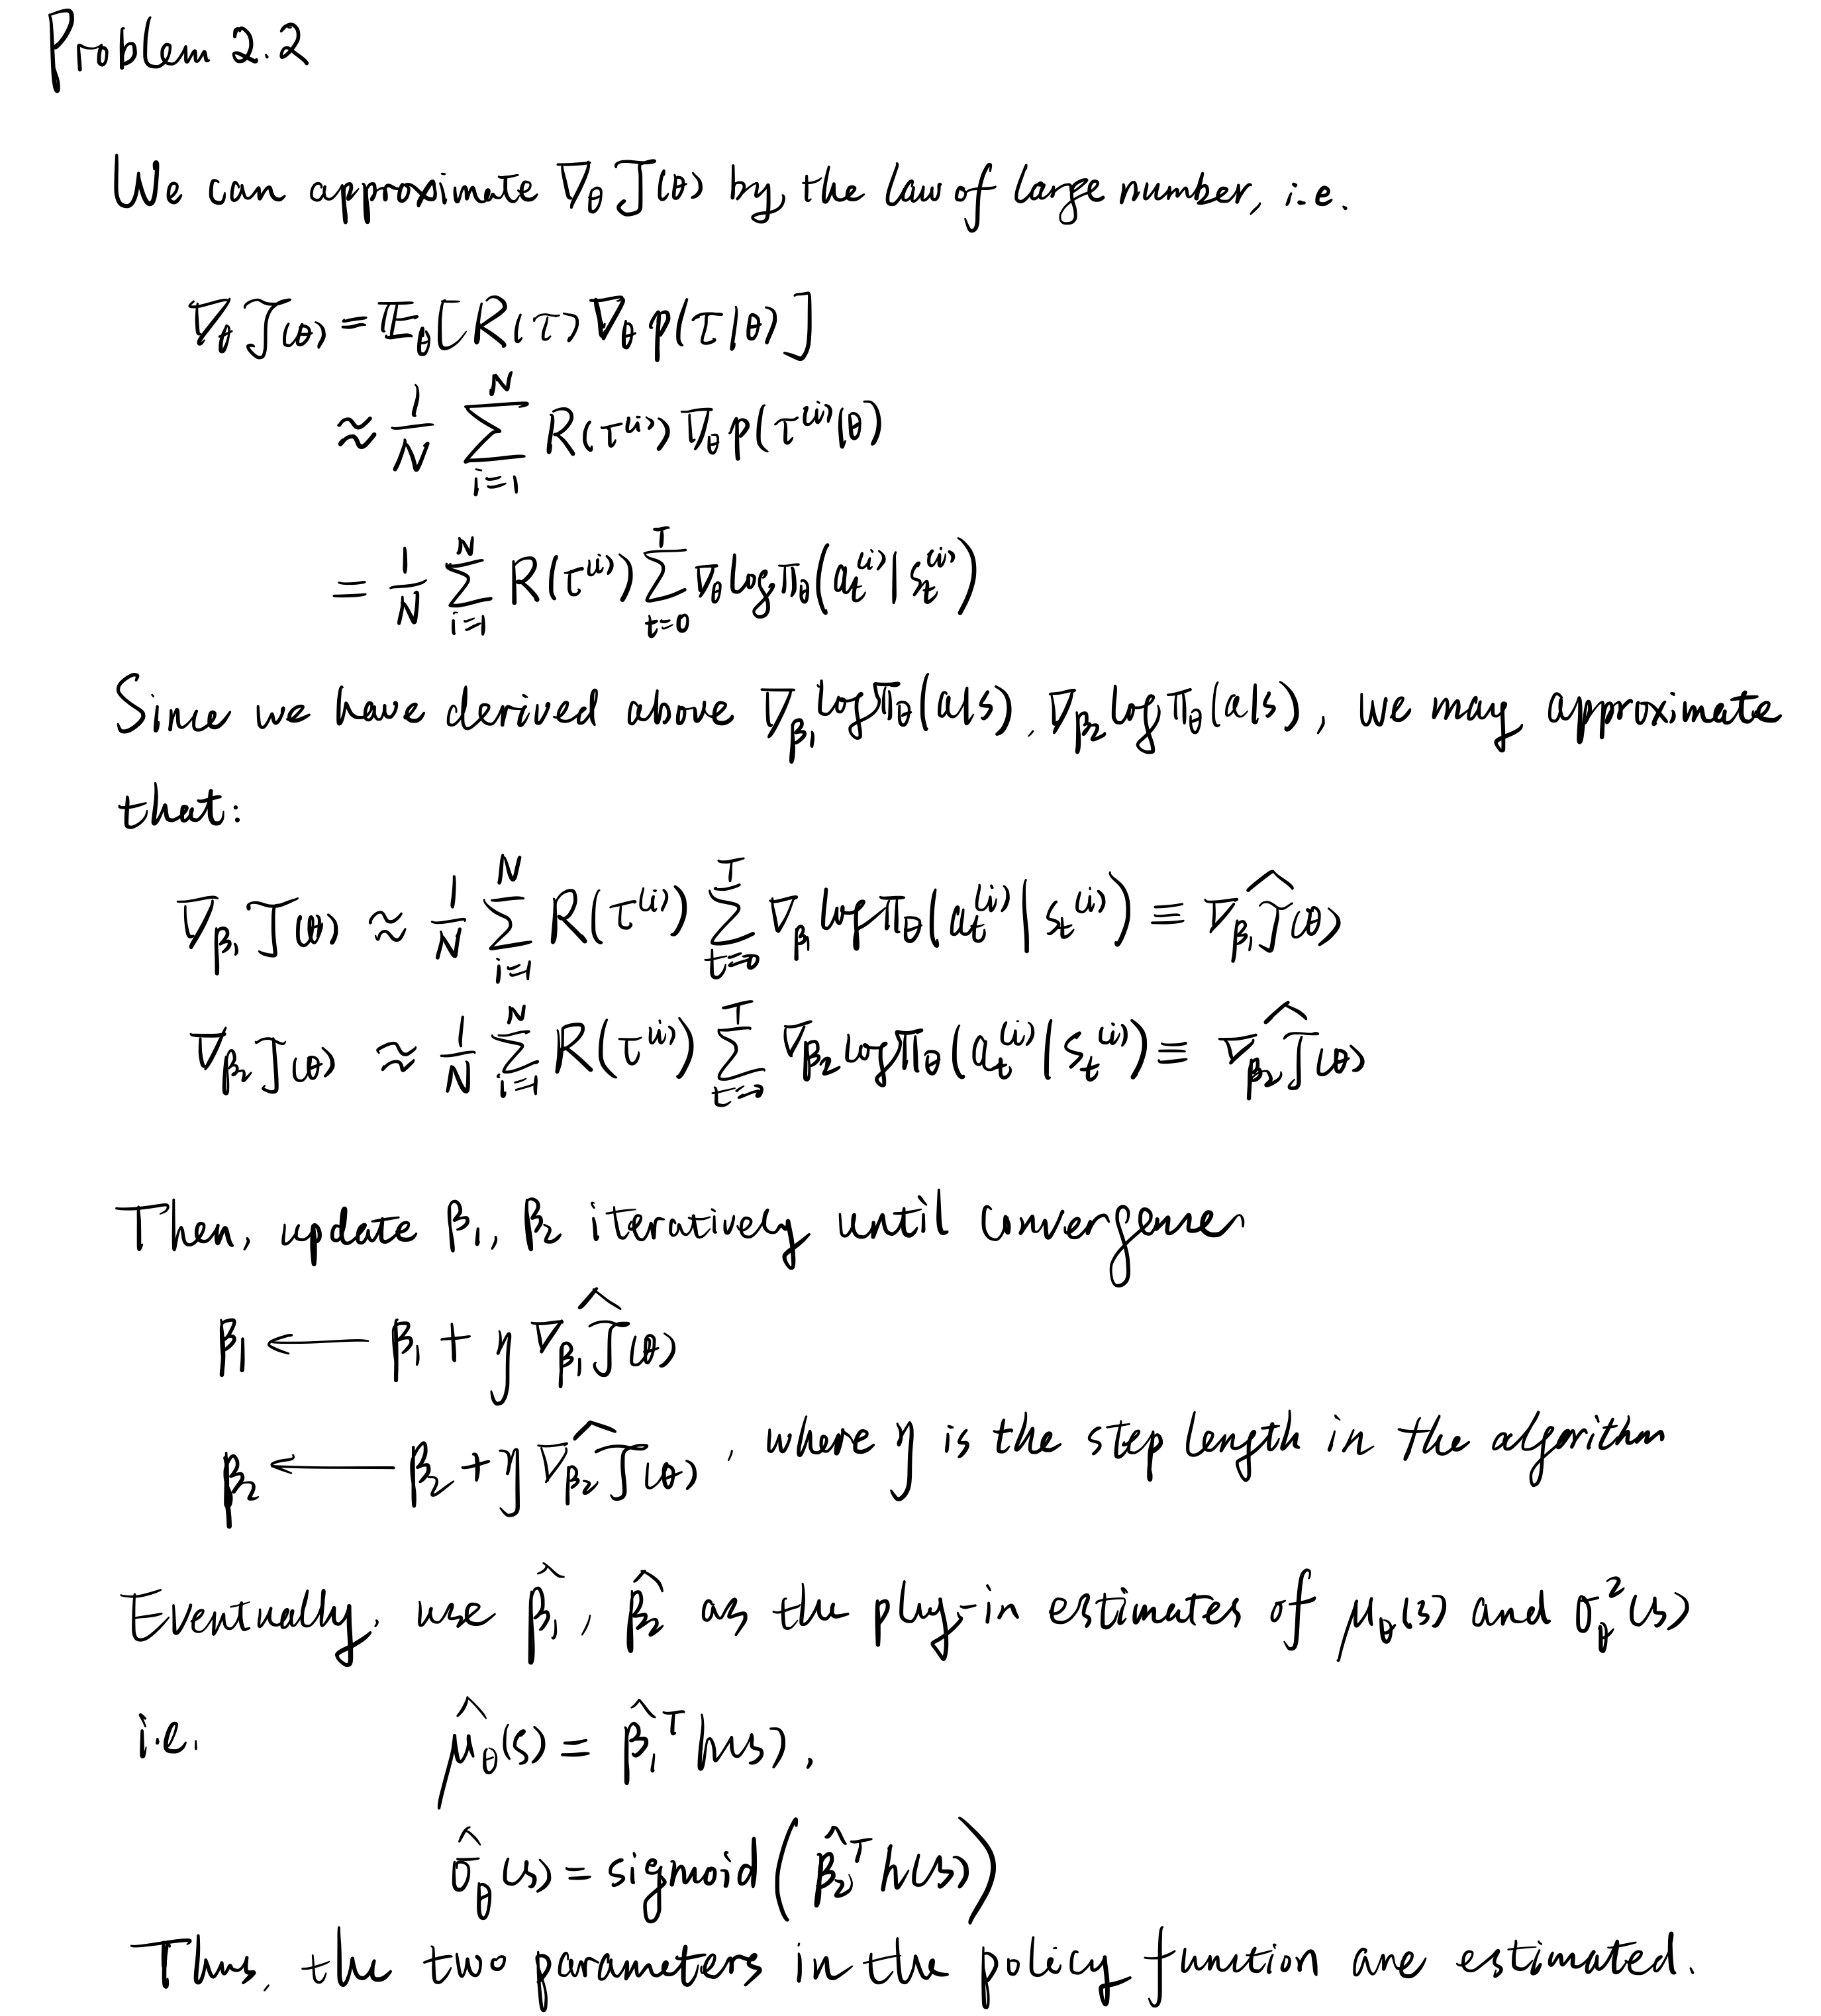 Problem 2.2
We can approximate ∇_θ J(θ) by the law of large number, i.e.
∇_θ J(θ) = 𝔼_θ[R(τ) ∇_θ p(τ|θ)]
≈ 1/N ∑_{i=1}^{N} R(τ^{(i)}) ∇_θ p(τ^{(i)}|θ)
= 1/N ∑_{i=1}^{N} R(τ^{(i)}) ∑_{t=0}^{T} ∇_θ log π_θ(a_t^{(i)} | s_t^{(i)})
Since we have derived above ∇_{β_1} log π_θ(a|s), ∇_{β_2} log π_θ(a|s), we may approximate
that:
∇_{β_1} J(θ) ≈ 1/N ∑_{i=1}^{N} R(τ^{(i)}) ∑_{t=0}^{T} ∇_{β_1} log π_θ(a_t^{(i)} | s_t^{(i)}) ≡ ∇_{β_1} Ĵ(θ)
∇_{β_2} J(θ) ≈ 1/N ∑_{i=1}^{N} R(τ^{(i)}) ∑_{t=0}^{T} ∇_{β_2} log π_θ(a_t^{(i)} | s_t^{(i)}) ≡ ∇_{β_2} Ĵ(θ)
Then, update β_1, β_2 iteratively until convergence
β_1 ← β_1 + η ∇_{β_1} Ĵ(θ)
β_2 ← β_2 + η ∇_{β_2} Ĵ(θ), where η is the step length in the algorithm
Eventually, use β̂_1, β̂_2 as the plug-in estimates of μ_θ(s) and σ_θ^2(s)
i.e. μ̂_θ(s) = β̂_1^T h(s),
σ̂_θ(s) = sigmoid(β̂_2^T h(s))
Thus, the two parameters in the policy function are estimated.